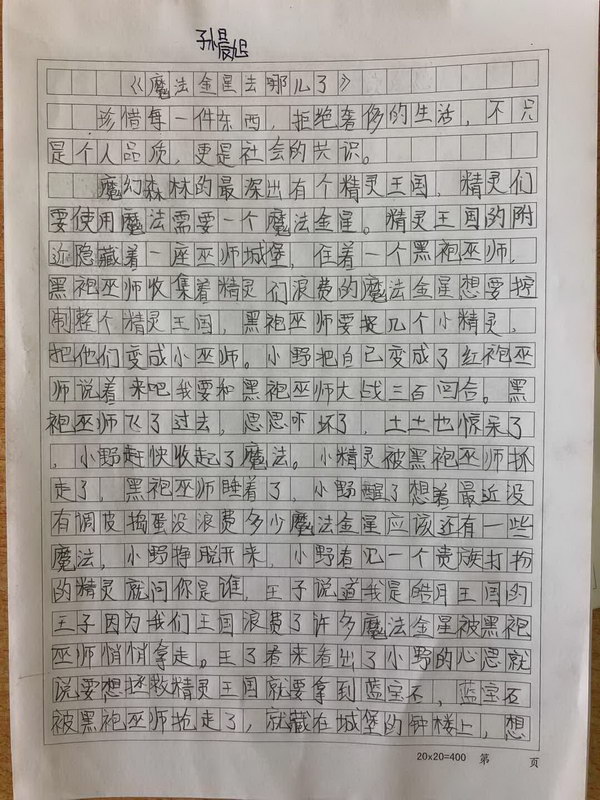 孙晨旭
《魔法金星去哪儿了》
珍惜每一件东西，拒绝奢侈的生活，不只
是个人品质，更是社会的共识。
魔幻森林的最深出有个精灵王国，精灵们
要使用魔法需要一个魔法金星。精灵王国的附
近隐藏着一座巫师城堡，住着一个黑袍巫师，
黑袍巫师收集着精灵们浪费的魔法金星想要控
制整个精灵王国，黑袍巫师要捉几个小精灵，
把他们变成小巫师。小野把自己变成了红袍巫
师说着来吧我要和黑袍巫师大战三百回合。黑
袍巫师飞了过去，思思吓坏了，土土也惊呆了
，小野赶快收起了魔法。小精灵被黑袍巫师抓
走了，黑袍巫师睡着了，小野醒了想着最近没
有调皮捣蛋没浪费多少魔法金星应该还有一些
魔法，小野挣脱开来，小野看见一个贵族打扮
的精灵就问你是谁，王子说道我是皓月王国的
王子因为我们王国浪费了许多魔法金星被黑袍
巫师悄悄拿走。王了看来看出了小野的心思就
说要想拯救精灵王国就要拿到蓝宝石，蓝宝石
被黑袍巫师抢走了，就藏在城堡的钟楼上，想
20×20=400 第 页